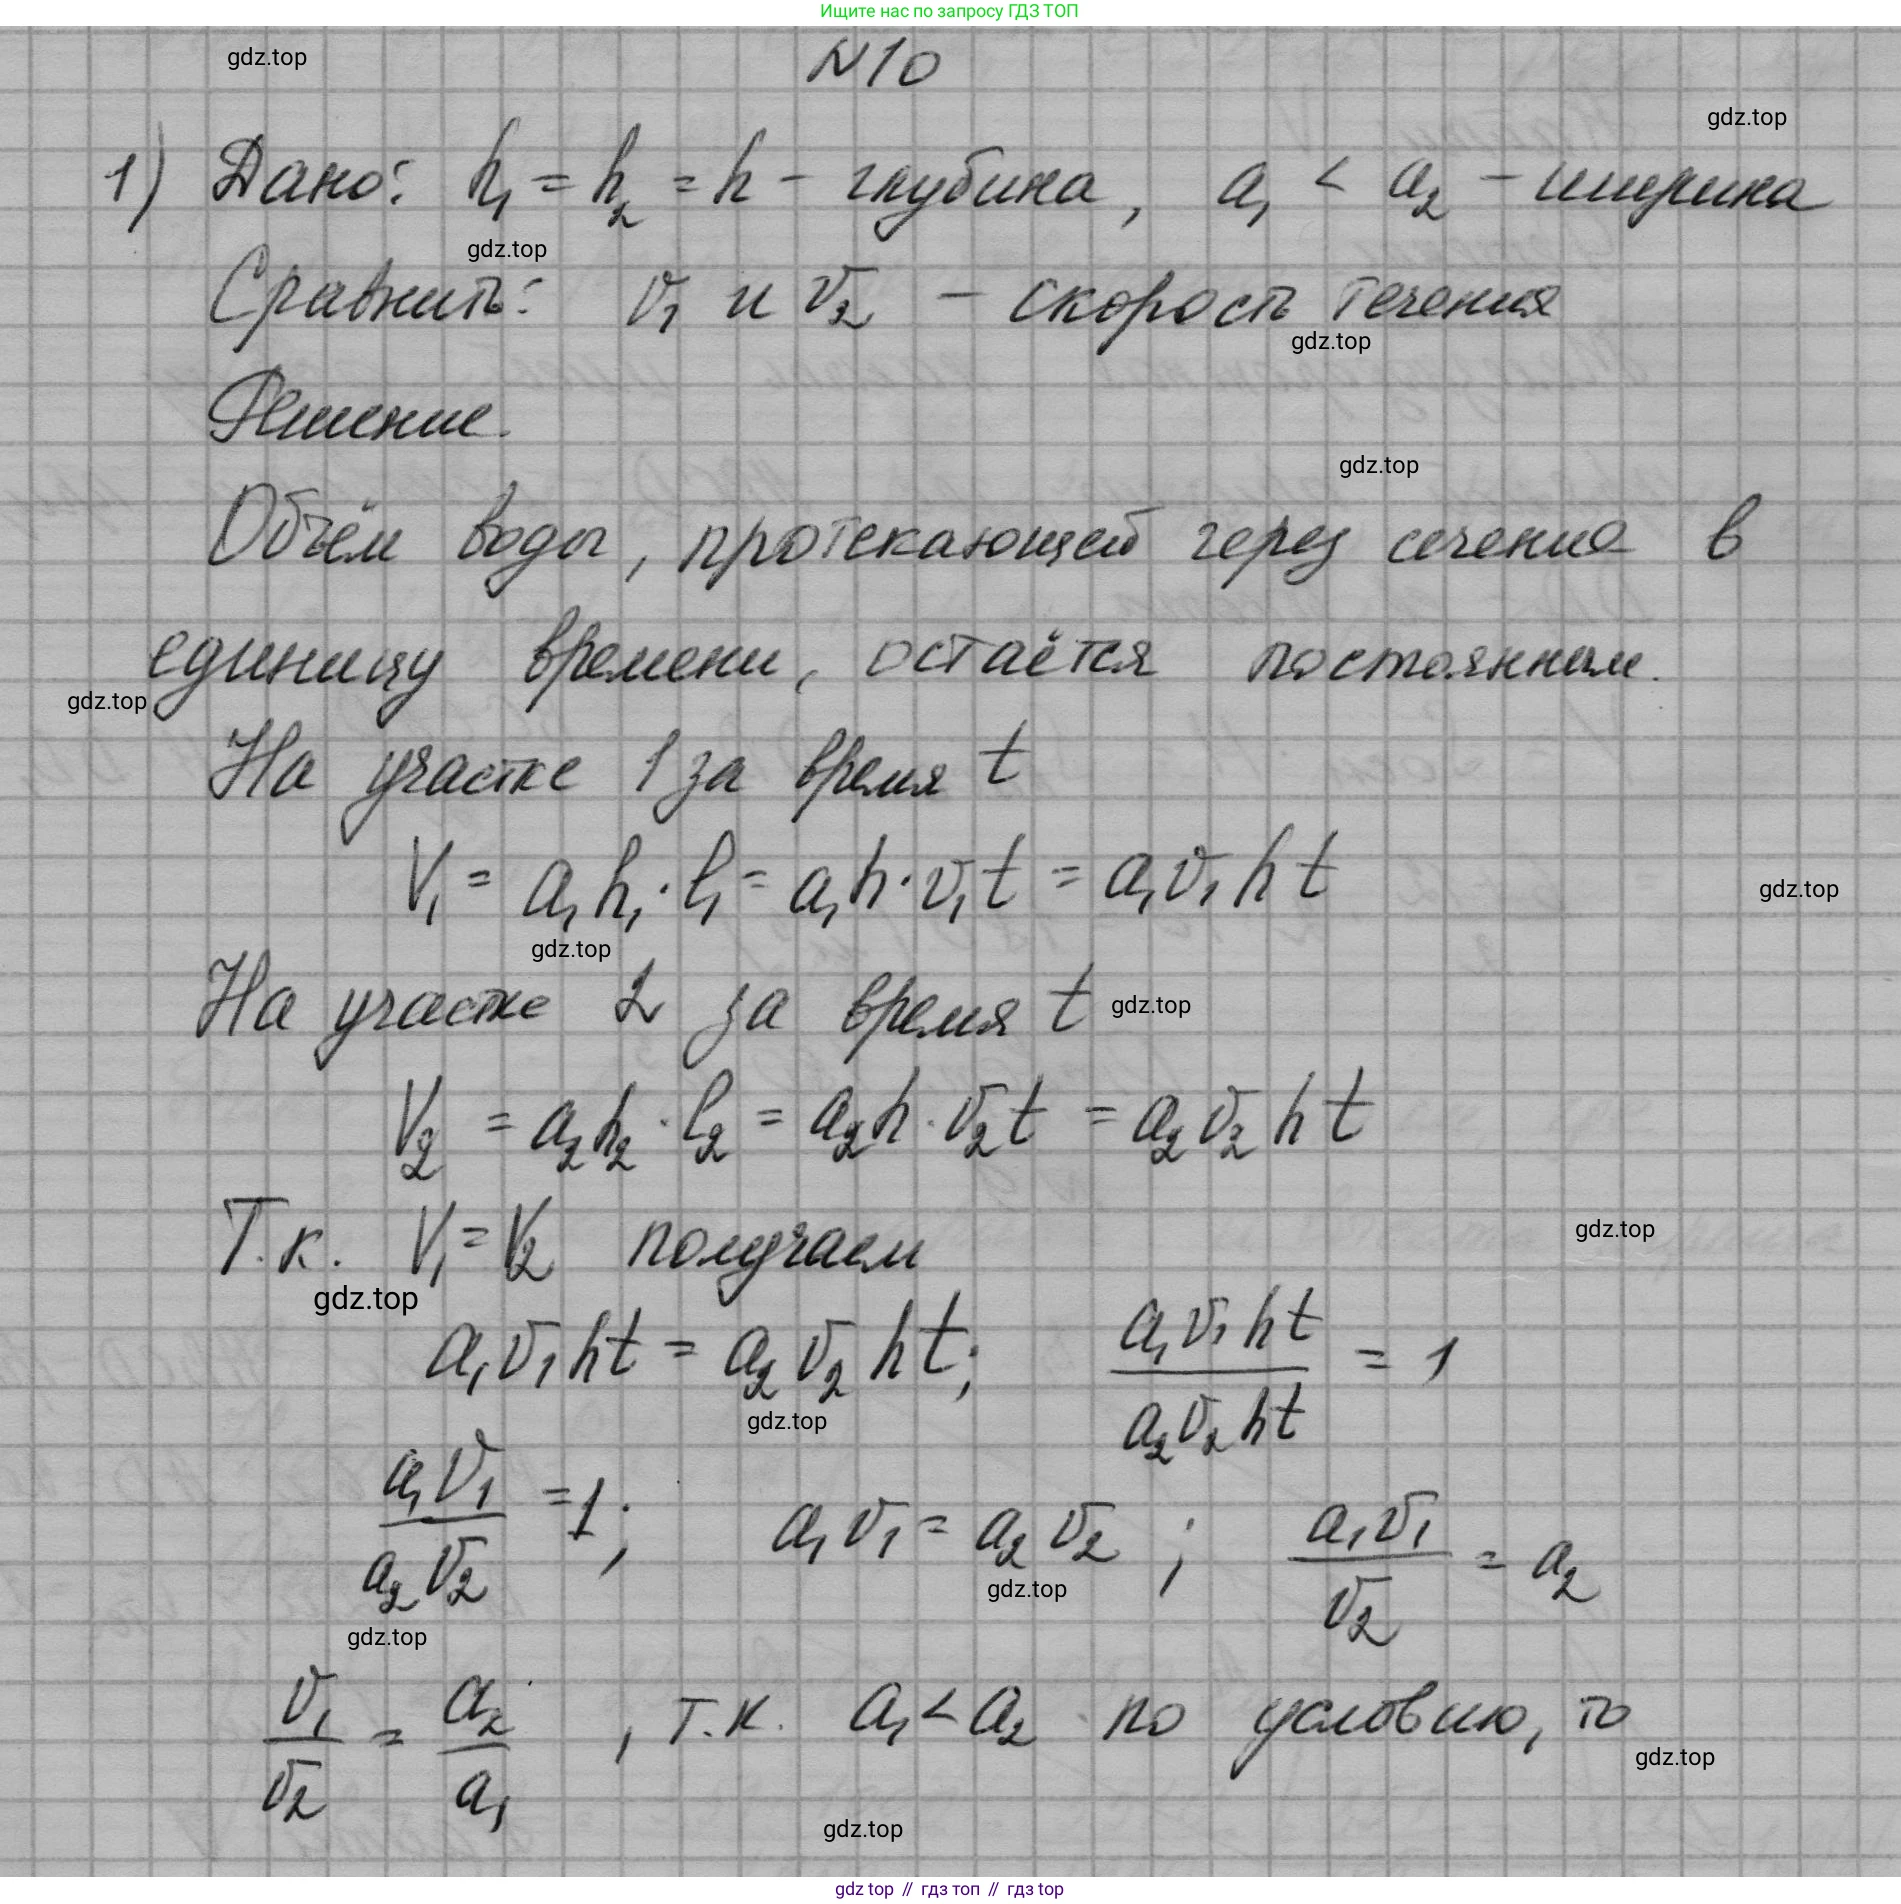 Ищите нас по запросу ГДЗ ТОП
gdz.top
N10
gdz.top
1) Дано: h₁ = h₂ = h – глубина, a₁ < a₂ – ширина
gdz.top
Сравнить: v₁ и v₂ – скорость течения
gdz.top
Решение.
gdz.top
Объём воды, протекающей через сечение в
единицу времени, остаётся постоянным.
gdz.top
На участке 1 за время t
V₁ = a₁h₁·l₁ = a₁h·v₁t = a₁v₁ht
gdz.top
gdz.top
На участке 2 за время t
gdz.top
V₂ = a₂h₂·l₂ = a₂h·v₂t = a₂v₂ht
Т.к. V₁ = V₂ получаем
gdz.top
gdz.top
a₁v₁ht = a₂v₂ht; a₁v₁ht / a₂v₂ht = 1
gdz.top
a₁v₁ / a₂v₂ = 1; a₁v₁ = a₂v₂; a₁v₁ / v₂ = a₂
gdz.top
gdz.top
v₁ / v₂ = a₂ / a₁, т.к. a₁ < a₂ по условию, то
gdz.top
gdz.top
gdz top // гдз топ // гдз top